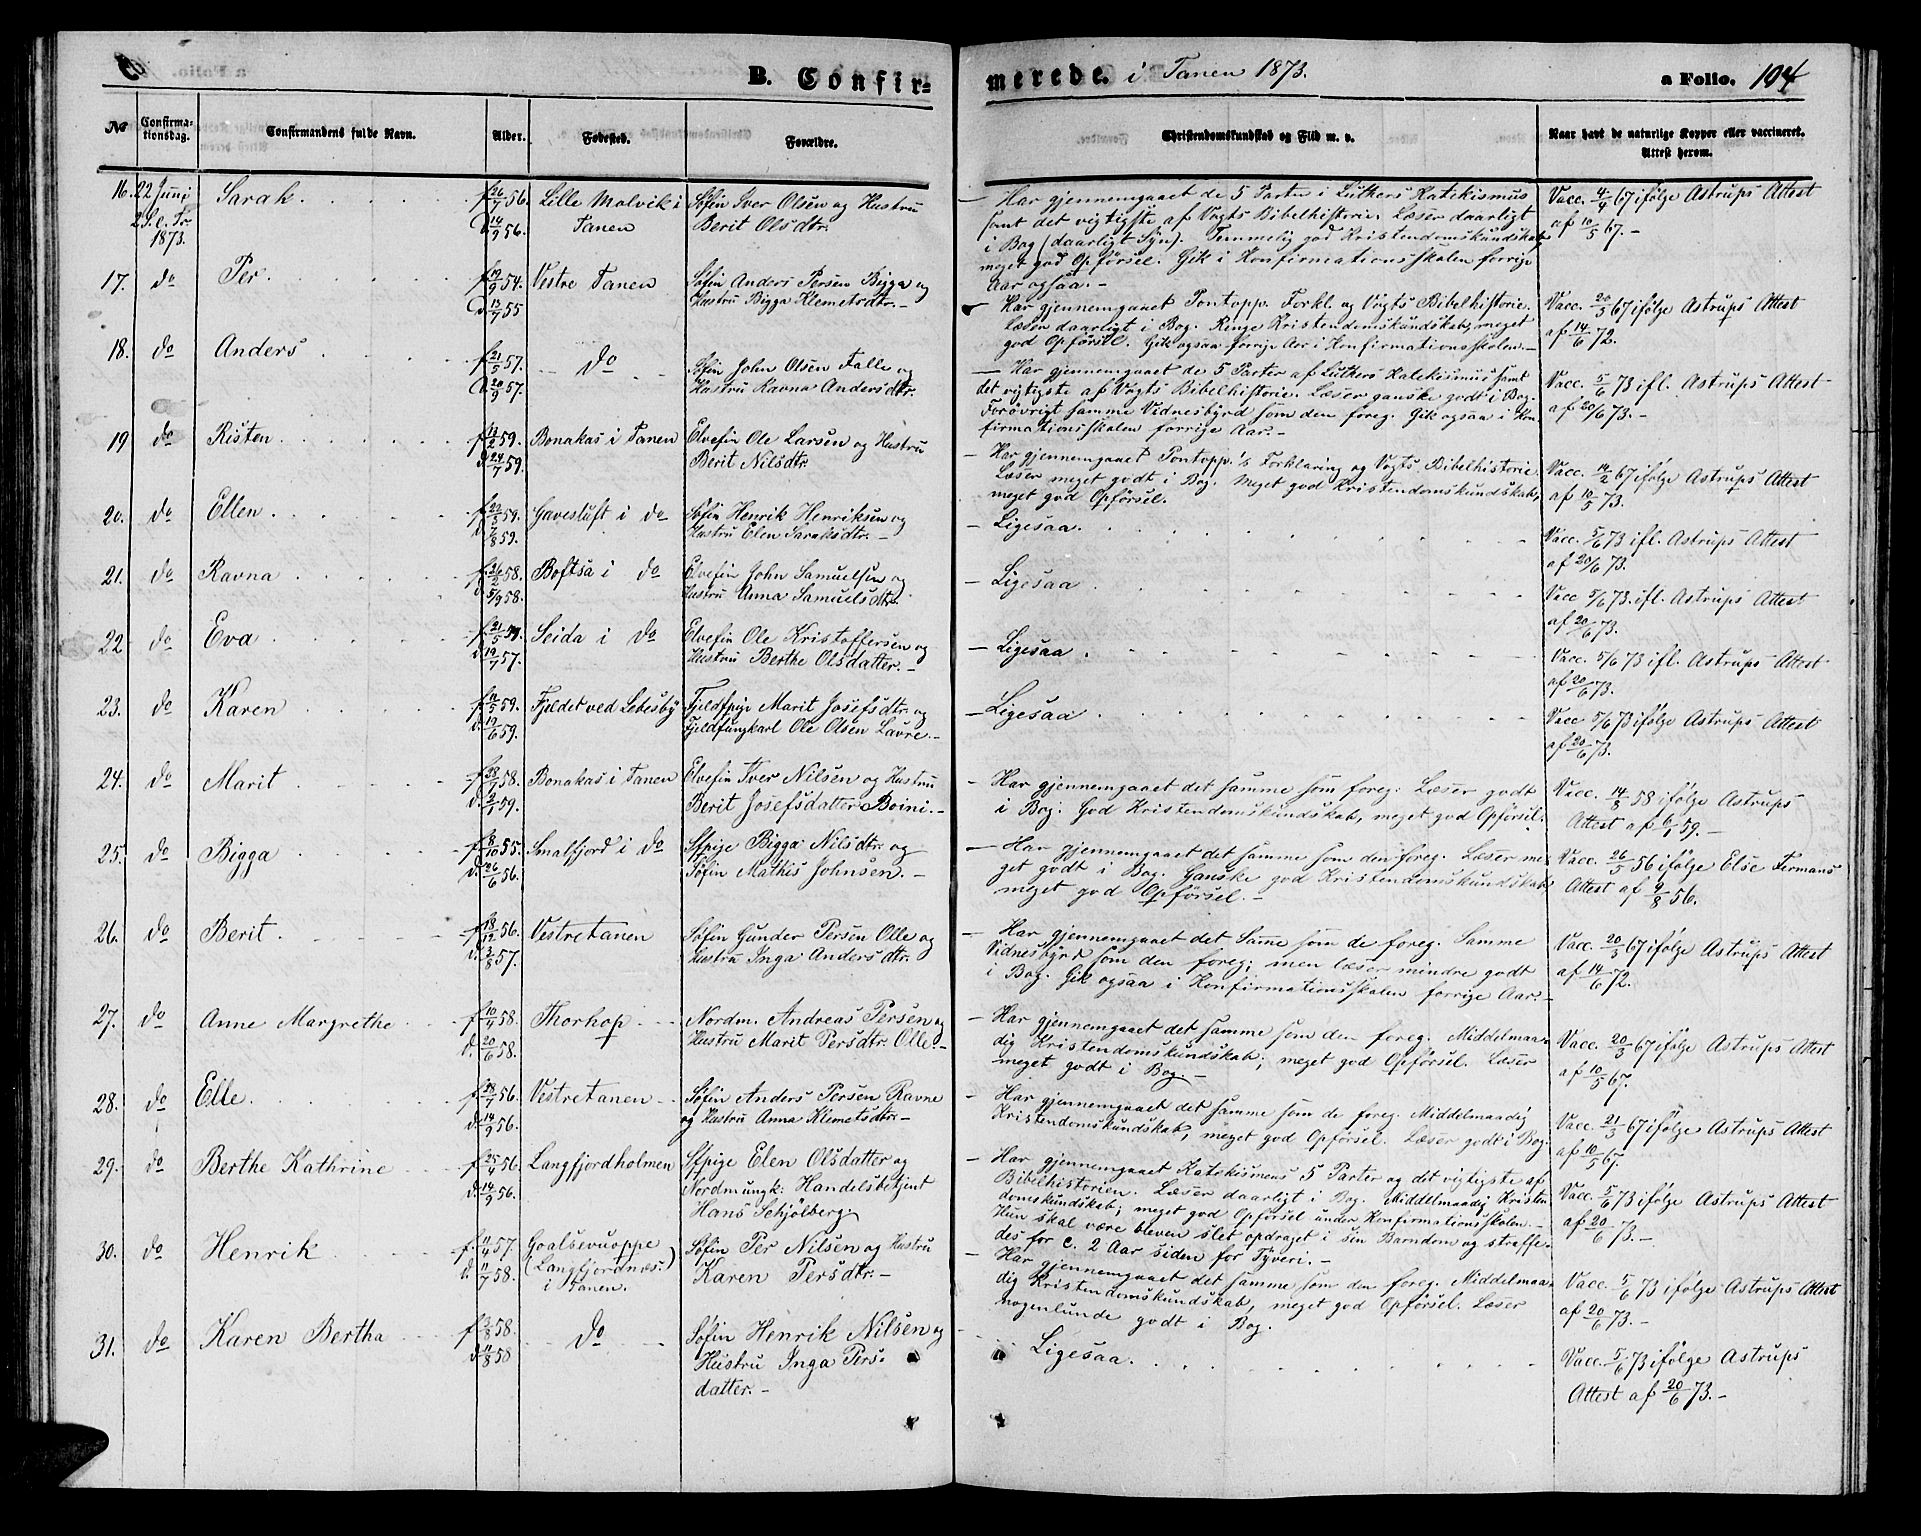 B. Confirmerede. i Tanen 1873. a Folio. 104
No Confirmationsdag. Confirmandens fulde Navn. Alder. Fødested. Forældre. Christendomskundskab og Flid m. v. Naar havt de naturlige Kopper eller vaccineret. Attest herom.
16. 22 Juni 2 S. e. Tr. 1873. Sarah. f 26/7 56. d 14/9 56. Lille Molvik i Tanen
Søfin Iver Olsen og Hustru
Berit Olsdtr.
— Har gjennemgaaet de 5 Parter i Luthers Katekismus
samt det vigtigste af Vogts Bibelhistorie. Læser daarligt
i Bog (daarligt Syn). Temmelig god Kristendomskundskab,
meget god Opførsel. Gik i Konfirmationsskolen forrige
Aar ogsaa. —
Vacc. 4/4 67 ifølge Astrups Attest
af 10/5 67. —
17. do Per. f 19/9 54. d. 13/7 55 Vestre Tanen
Søfin Anders Persen Bigga og
Hustru Bigga Klemetsdtr. —
— Har gjennemgaaet Pontopp. Forkl. og Vogts Bibelhistorie.
Læser daarligt i Bog. Ringe Kristendomskundskab, meget
god Opførsel. Gik ogsaa forrige Aar i Konfirmationsskolen. —
Vacc. 20/3 67 ifølge Astrups Attest
af 14/6 72.
18. do Anders. f 21/5 57. d 20/9 57. do
Søfin John Olsen Falle og
Hustru Ravna Andersdtr.
— Har gjennemgaaet de 5 Parter af Luthers Katekismus samt
det vigtigste af Vogts Bibelhistorie. Læser ganske godt i Bog.
Forøvrigt samme Vidnesbyrd som den foreg. Gik ogsaa i Kon
firmationsskolen forrige Aar. —
Vacc. 5/6 73 ifl. Astrups Attest
af 20/6 73. —
19 do Risten. f 11/2 59. d 24/7 59. Bonakas i Tanen
Elvefin Ole Larsen og Hustru
Berit Nilsdtr
— Har gjennemgaaet Pontopp.'s Forklaring og Vogts Bibelhistorie
Læser meget godt i Bog. Meget god Kristendomskundskab,
meget god Opførsel.
Vacc. 14/2 67 ifølge Astrups Attest
af 10/5 73.
20. do Ellen. f 22/5 59. d 7/8 59. Gavesluft i do
Søfin Henrik Henriksen og
Hustru Elen Sarahsdtr. —
— Ligesaa.
Vacc. 5/6 73 ifl. Astrups Attest
af 20/6 73.
21. do Ravna f 26/2 58. d 5/9 58. Boftsa i do
Elvefin John Samuelsen og
Hustru Anna Samuelsdtr.
— Ligesaa
Vacc 5/6 73. ifl. Astrups Attest
af 20/6 73.
22. do Eva f 21/5 57. d 19/7 57. Seida i do
Elvefin Ole Kristoffersen og
Hustru Berthe Olsdatter. —
— Ligesaa.
Vacc. 5/6 73 ifl. Astrups Attest
af 20/6 73.
23. do Karen f 11/5 59. d. 19/6 59. Fjeldet ved Lebesby
Fjeldfpige Marit Josefsdtr. og
Fjeldfungkarl Ole Olsen Lavre. —
— Ligesaa
Vacc 5/6 73 ifølge Astrups Attest
af 20/6 73.
24. do Marit f 28/7 58. d. 2/1 59. Bonakas i Tanen
Elvefin Iver Nilsen og Hustru
Berit Josefsdatter Boini. —
— Har gjennemgaaet det samme som foreg. Læser godt
i Bog. God Kristendomskundskab, meget god Opførsel.
Vacc. 14/8 58 ifølge Astrups
Attest af 6/1 59. —
25. do Bigga f 8/10 55. d. 26/6 56. Smalfjord i do
Sfpige Bigga Nilsdtr. og
Søfin Mathis Johnsen. —
— Har gjennemgaaet det samme som den foreg. Læser me
get godt i Bog. Ganske god Kristendomskundskab
meget god Opførsel. —
Vacc. 26/5 56 ifølge Else Fermans
Attest af 9/8 56.
26. do Berit. f 18/12 56. d. 2/8 57. Vestretanen
Søfin Gunder Persen Olle og
Hustru Inga Andersdtr.
— Har gjennemgaaet det Samme som de foreg. Samme
Vidnesbyrd som den foreg; men læser mindre godt
i Bog. Gik ogsaa i Konfirmationsskolen forrige Aar. —
Vacc. 20/3 67 ifølge Astrups Attest
af 14/6 72.
27. do Anne Margrethe f 10/4 58. d. 20/6 58. Thorhop
Nordm. Andreas Persen og
Hustru Marit Persdtr. Olle. —
— Har gjennemgaaet det samme som den foreg. Middelmaa-
dig Kristendomskundskab; meget god Opførsel. Læser
meget godt i Bog. —
Vacc. 20/3 67 ifølge Astrups Attest
af 10/5 67.
28. do Elle. f 28/7 56. d. 14/9 56. Vestretanen
Søfin Anders Persen Ravne
og Hustru Anna Klemetsdtr. —
— Har gjennemgaaet det samme som de foreg. Middelmaadig
Kristendomskundskab, meget god Opførsel. Læser godt i Bog.
Vacc. 21/3 67 ifølge Astrups Attest
af 10/5 67.
29. do Berthe Kathrine f 25/4 56. d. 14/9 56. Langfjordholmen
Sfpige Elen Olsdatter og
Nordm ungk: Handelsbetjent
Hans Schjølberg.
— Har gjennemgaaet Katekismens 5 Parter og det vigtigste af
Bibelhistorien. Læser daarligt i Bog. Middelmaadig Kristen
domskundskab; meget god Opførsel under Konfirmationsskolen. —
Hun skal være bleven slet opdraget i sin Barndom og straffe-
des for c. 2 Aar siden for Tyveri. —
Vacc. 5/6 73 ifølge Astrups Attest
af 20/6 73. —
30. do Henrik f. 11/4 57. d. 11/7 58. Goalsevuoppe (Langfjordnæs.) i Tanen.
Søfin Per Nilsen og Hustru
Karen Persdtr. —
— Har gjennemgaaet det samme som den foreg. Middelmaa-
dig Kristendomskundskab, meget god Opførsel. Læser
nogenlunde godt i Bog.
Vacc. 5/6 73 ifølge Astrups Attest
af 20/6 73. —
31. do Karen Bertha f 3/8 58. d 11/8 58 do
Søfin Henrik Nilsen og
Hustru Inga Pers-
datter. —
Ligesaa.
Vacc. 5/6 73 ifølge Astrups
Attest af 20/6 73. —